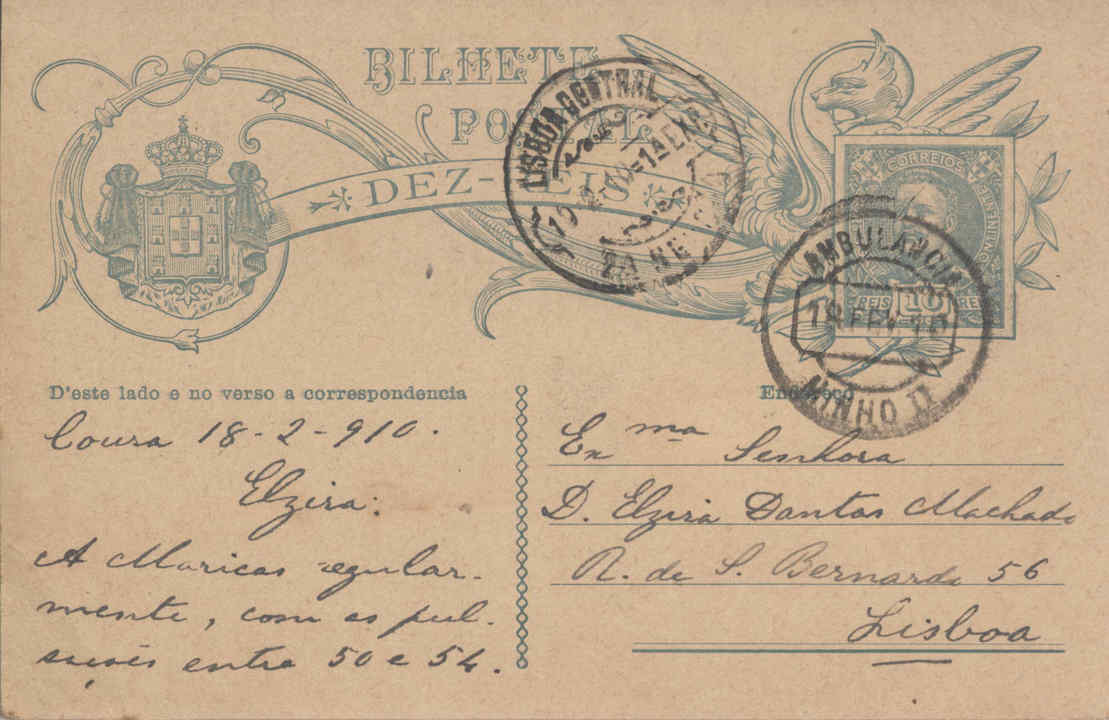 BILHETE
POSTAL
DEZ-REIS
LISBOA-CENTRAL
1ª
CORREIOS
REIS 10 REIS
AMBULANCIA
18 FEV 10
MINHO II
D'este lado e no verso a correspondencia
Coura 18-2-910.
Elzira:
A Maricas regular-
mente, com as pul-
sações entre 50 e 54.
Endereço
Exma Senhora
D. Elzira Dantas Machado
R. de S. Bernardo 56
Lisboa